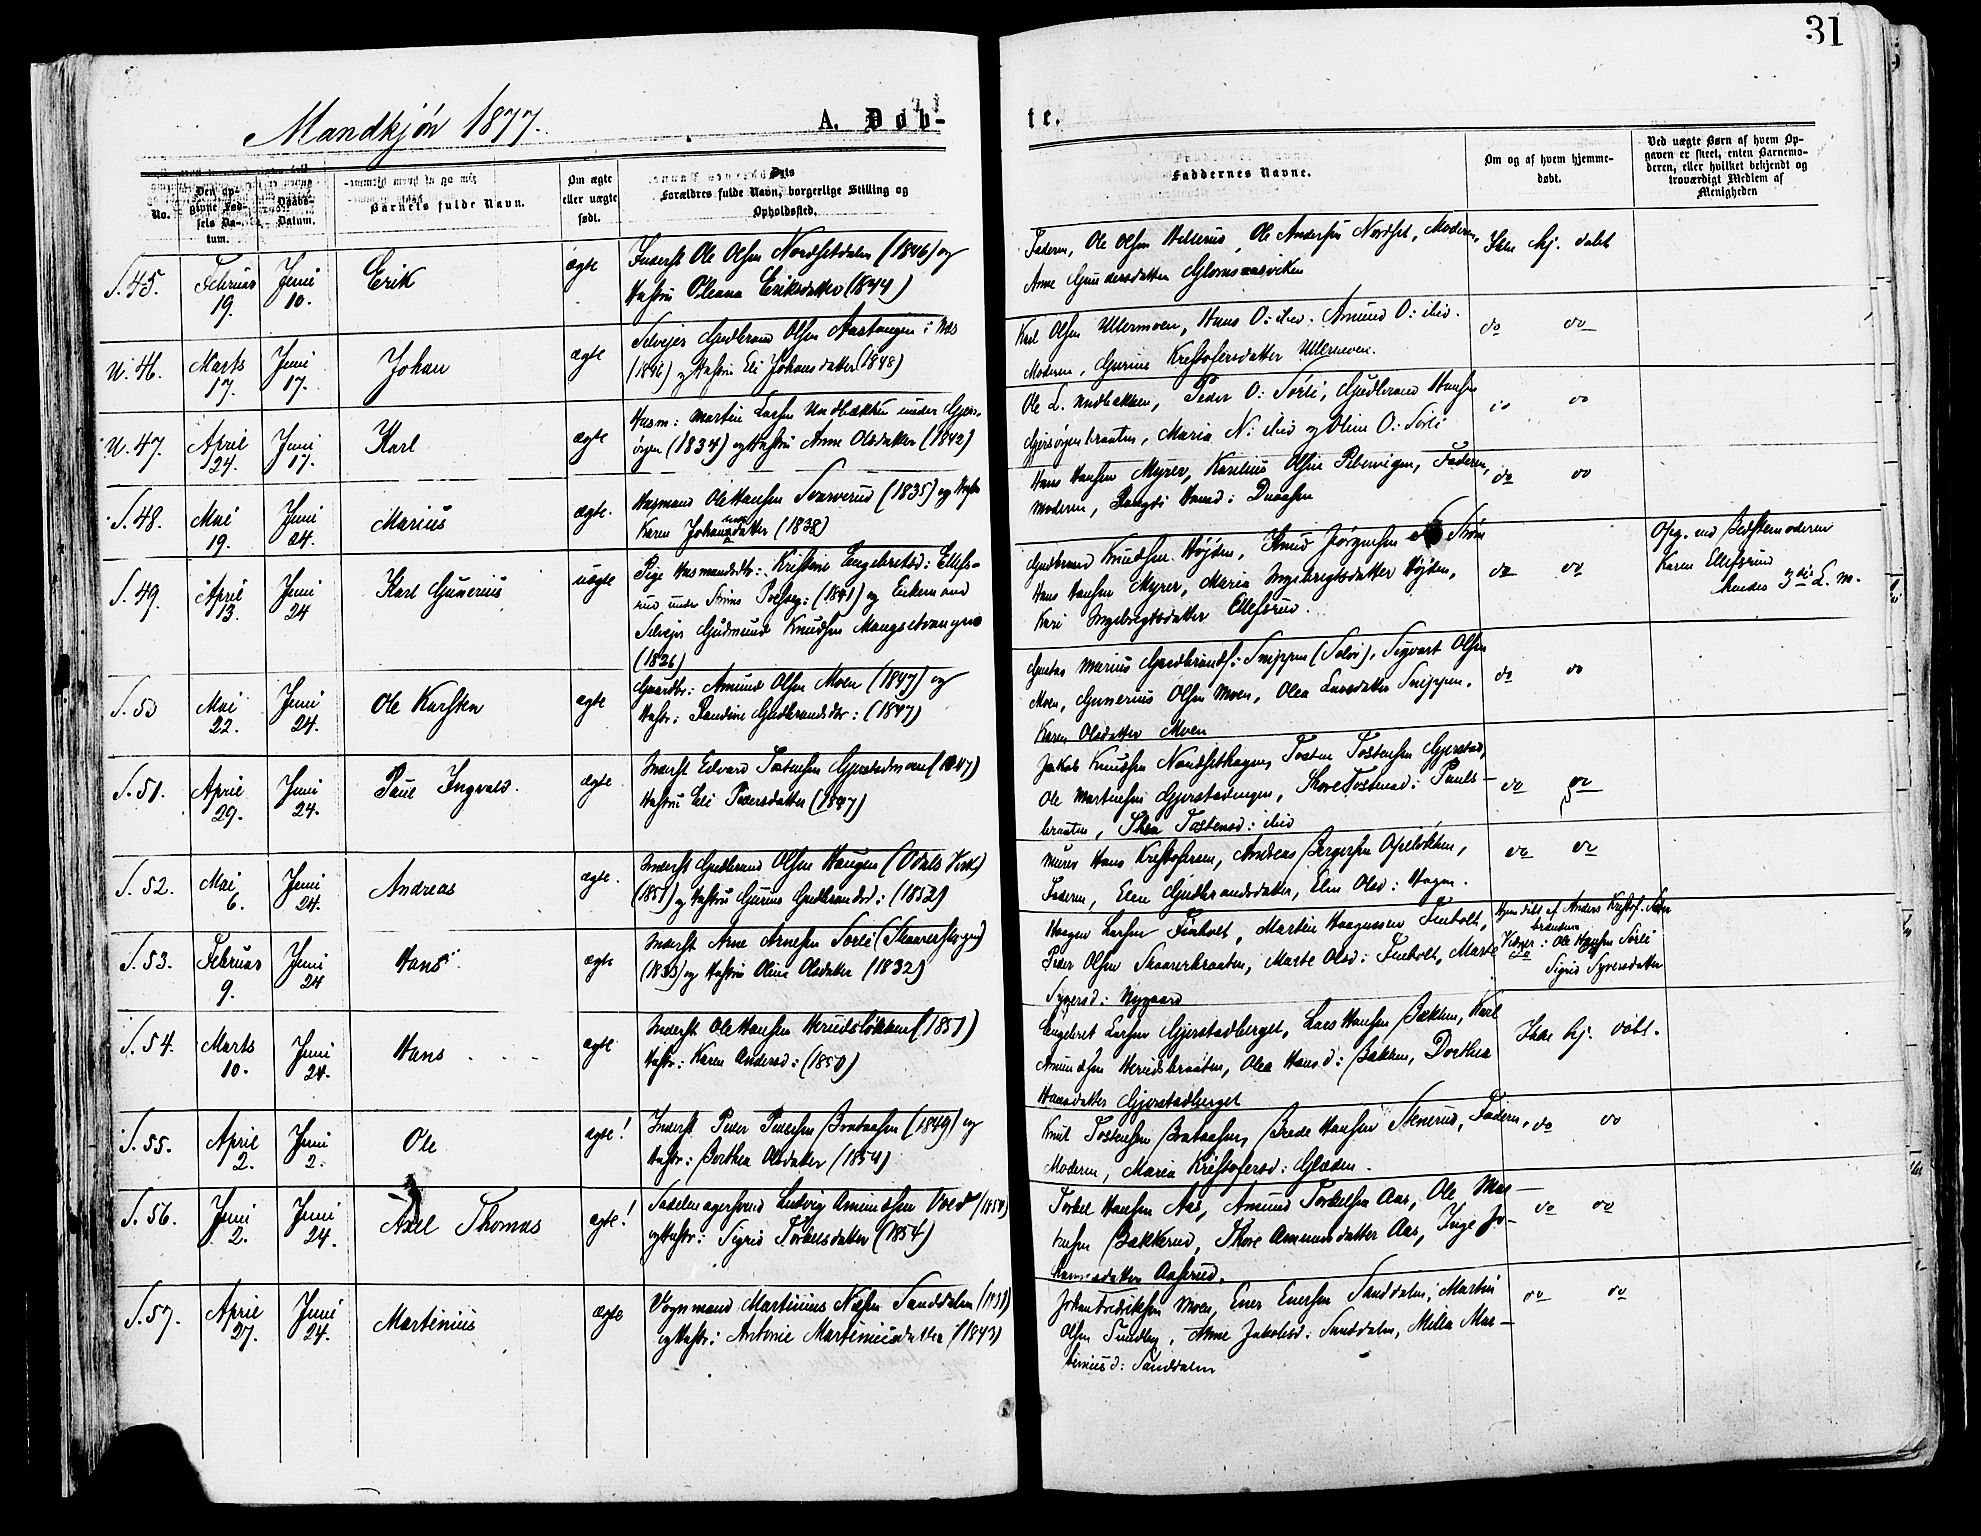 31
Mandkjön 1877.
A. Døb-
te.
No.
Den op-
givne Fød-
sels Da-
tum.
Daabs-
Datum.
Barnets fulde Navn.
Om ægte
eller uægte
født.
Dets
Forældres fulde Navn, borgerlige Stilling og
Opholdssted.
Faddernes Navne.
Om og af hvem hjemme-
døbt.
Ved uægte Børn af hvem Op-
gaven er skeet, enten Barnemo-
deren, eller hvilket bekjendt og
troværdigt Medlem af
Menigheden
S. 45.
Februar
19.
Juni
10.
Erik
ægte
Inderst Ole Olsen Nordsetdalen (1846) og
Hustru Oleana Eriksdatter (1844)
Faderen, Ole Olsen, Ole Andersen Nordset, Moderen,
Anne Gundersdatter Glomsaasviken
Ikke hj. døbt
U. 46.
Marts
17.
Juni
17.
Johan
ægte
Selvejer Gudbrand Olsen Aastangen i Næs
(1846) og Hustru Eli Johansdatter (1848)
Karl Olsen Ullermoen, Hans O: ibid. Amund O: ibid.
Moderen, Gurine Kristofersdatter Ullermoen.
do do
U. 47.
April
24.
Juni
17.
Karl
ægte
Husm: Martin Larsen Nodbækken under Gjers-
øjen (1834) og Hustru Anne Olsdatter (1842)
Ole L. Nodbækken, Peder O: Sørli, Gudbrand Hansen
Gjersøjenbraaten, Maria N: ibid og Oline O: Sørli
do do
S. 48.
Mai
19.
Juni
24.
Marius
ægte.
Husmand Ole Hansen Svarverud (1835) og Hustru
Karen Johannesdatter (1838)
Hans Hansen Myrer, Karelius Olsen Pebervigen, Faderen,
Moderen, Hansd:
do do
S. 49.
April
13.
Juni
24
Karl Gunerius
uægte
Pige Husmandsdtr: Kristine Engebretsd: Ellefs-
rud under Strøms Præsteg: (1841) og Enkemand
Selvejer Gudmund Knudsen Mangset
(1826)
Gudbrand Knudsen Højden, Knud Jørgensen Strøm
Hans Hansen Myrer, Maria Ingebrigtsdatter Højden,
Kari Ingebrigtsdatter Ellefsrud.
do do
Opg. ved Bedstemoderen
Karen Ellefsrud
hendes 3die L. m.
S. 50
Mai
22.
Juni
24.
Ole Karsten
ægte
Gaardbr: Amund Olsen Moen (1847) og
Hustr: Randine Gudbrandsdtr: (1847)
Gustav Marius Gudbrands: Snippen (Solør), Sigvart Olsen
Moen, Gunerius Olsen Moen, Olea Larsdatter Snippen.
Karen Olsdatter Moen
do do
S. 51.
April
29.
Juni
24.
Paul Ingvald.
ægte
Inderst Edvard Tostensen Gjerstadmoen (1847)
Hustru Eli Pedersdatter (1847)
Jakob Knudsen Nordsethagen, Tosten Tostensen Gjerstad,
Ole Martinsen Gjerstadengen, Thore Tostensd: Pauls-
braaten, Thea Tostensd: ibid
do do
S. 52.
Mai
6.
Juni
24.
Andreas
ægte.
Inderst Gudbrand Olsen Haugen (Odals Værk)
(1851) og Hustru Gurine Gudbrandsd: (1852)
Murer Hans Kristofersen, Andreas Bergersen Opeløkken,
Faderen, Elen Gudbrandsdatter, Elen Olsd: Hagen.
do do
S. 53.
Februar
9.
Juni
24
Hans
ægte
Inderst Arne Arnesen Sørli (Skaarerskogen)
(1833) og Hustru Oline Olsdatter (1832)
Haagen Larsen Finholt, Martin Haagensen Finholt,
Peder Olsen Skaarerbraaten, Marte Olsd: Finholt, Marte
Syversd: Nygaard
Hjemdøbt af Anders Kristof. Sæter
braaten
Vidner: Ole Hansen Sørli
Sigrid Syversdatter
S. 54.
Marts
10.
Juni
24.
Hans
ægte
Inderst Ole Hansen Herudsløkken (1851)
Hustr: Karen Andersd: (1850)
Engebret Larsen Gjerstadberget, Lars Hansen Bakken, Karl
Amundsen Herudsbraaten, Olea Hansd: Bakken, Dorthea
Hansdatter Gjerstadberget
Ikke hj. døbt.
S. 55.
April
2.
Juni
2.
Ole
ægte!
Inderst Peder Pedersen Brataasen (1849) og
Hustr: Berthea Olsdatter (1854)
Knut Tostensen Brataasen, Brede Hansen Skverud, Faderen,
Moderen, Maria Kristofersd: Glæden.
do do
S. 56.
Juni
2.
Juni
24.
Axel Thomas
ægte!
Sadelmagersvend Ludvig Amundsen Vold (1850)
og Hustr: Sigrid Torkelsdatter (1854)
Torkel Hansen Aas, Amund Torkelsen Aas, Ole Mar-
tinsen Bakkerud, Thore Amundsdatter Aas, Inge Jo-
hannesdatter Aaserud.
do do
S. 57.
April
27.
Juni
24.
Martinius
ægte
Vognmand Martinius Næsen Sanddalen (1838)
og Hustr: Antonie Martiniusdatter (1843)
Johan Fredriksen Moen, Ener Enersen Sanddalen, Martin
Olsen Sundby, Anne Jakobsd: Sanddalen, Milla Mar-
tiniusd: Sanddalen
do do